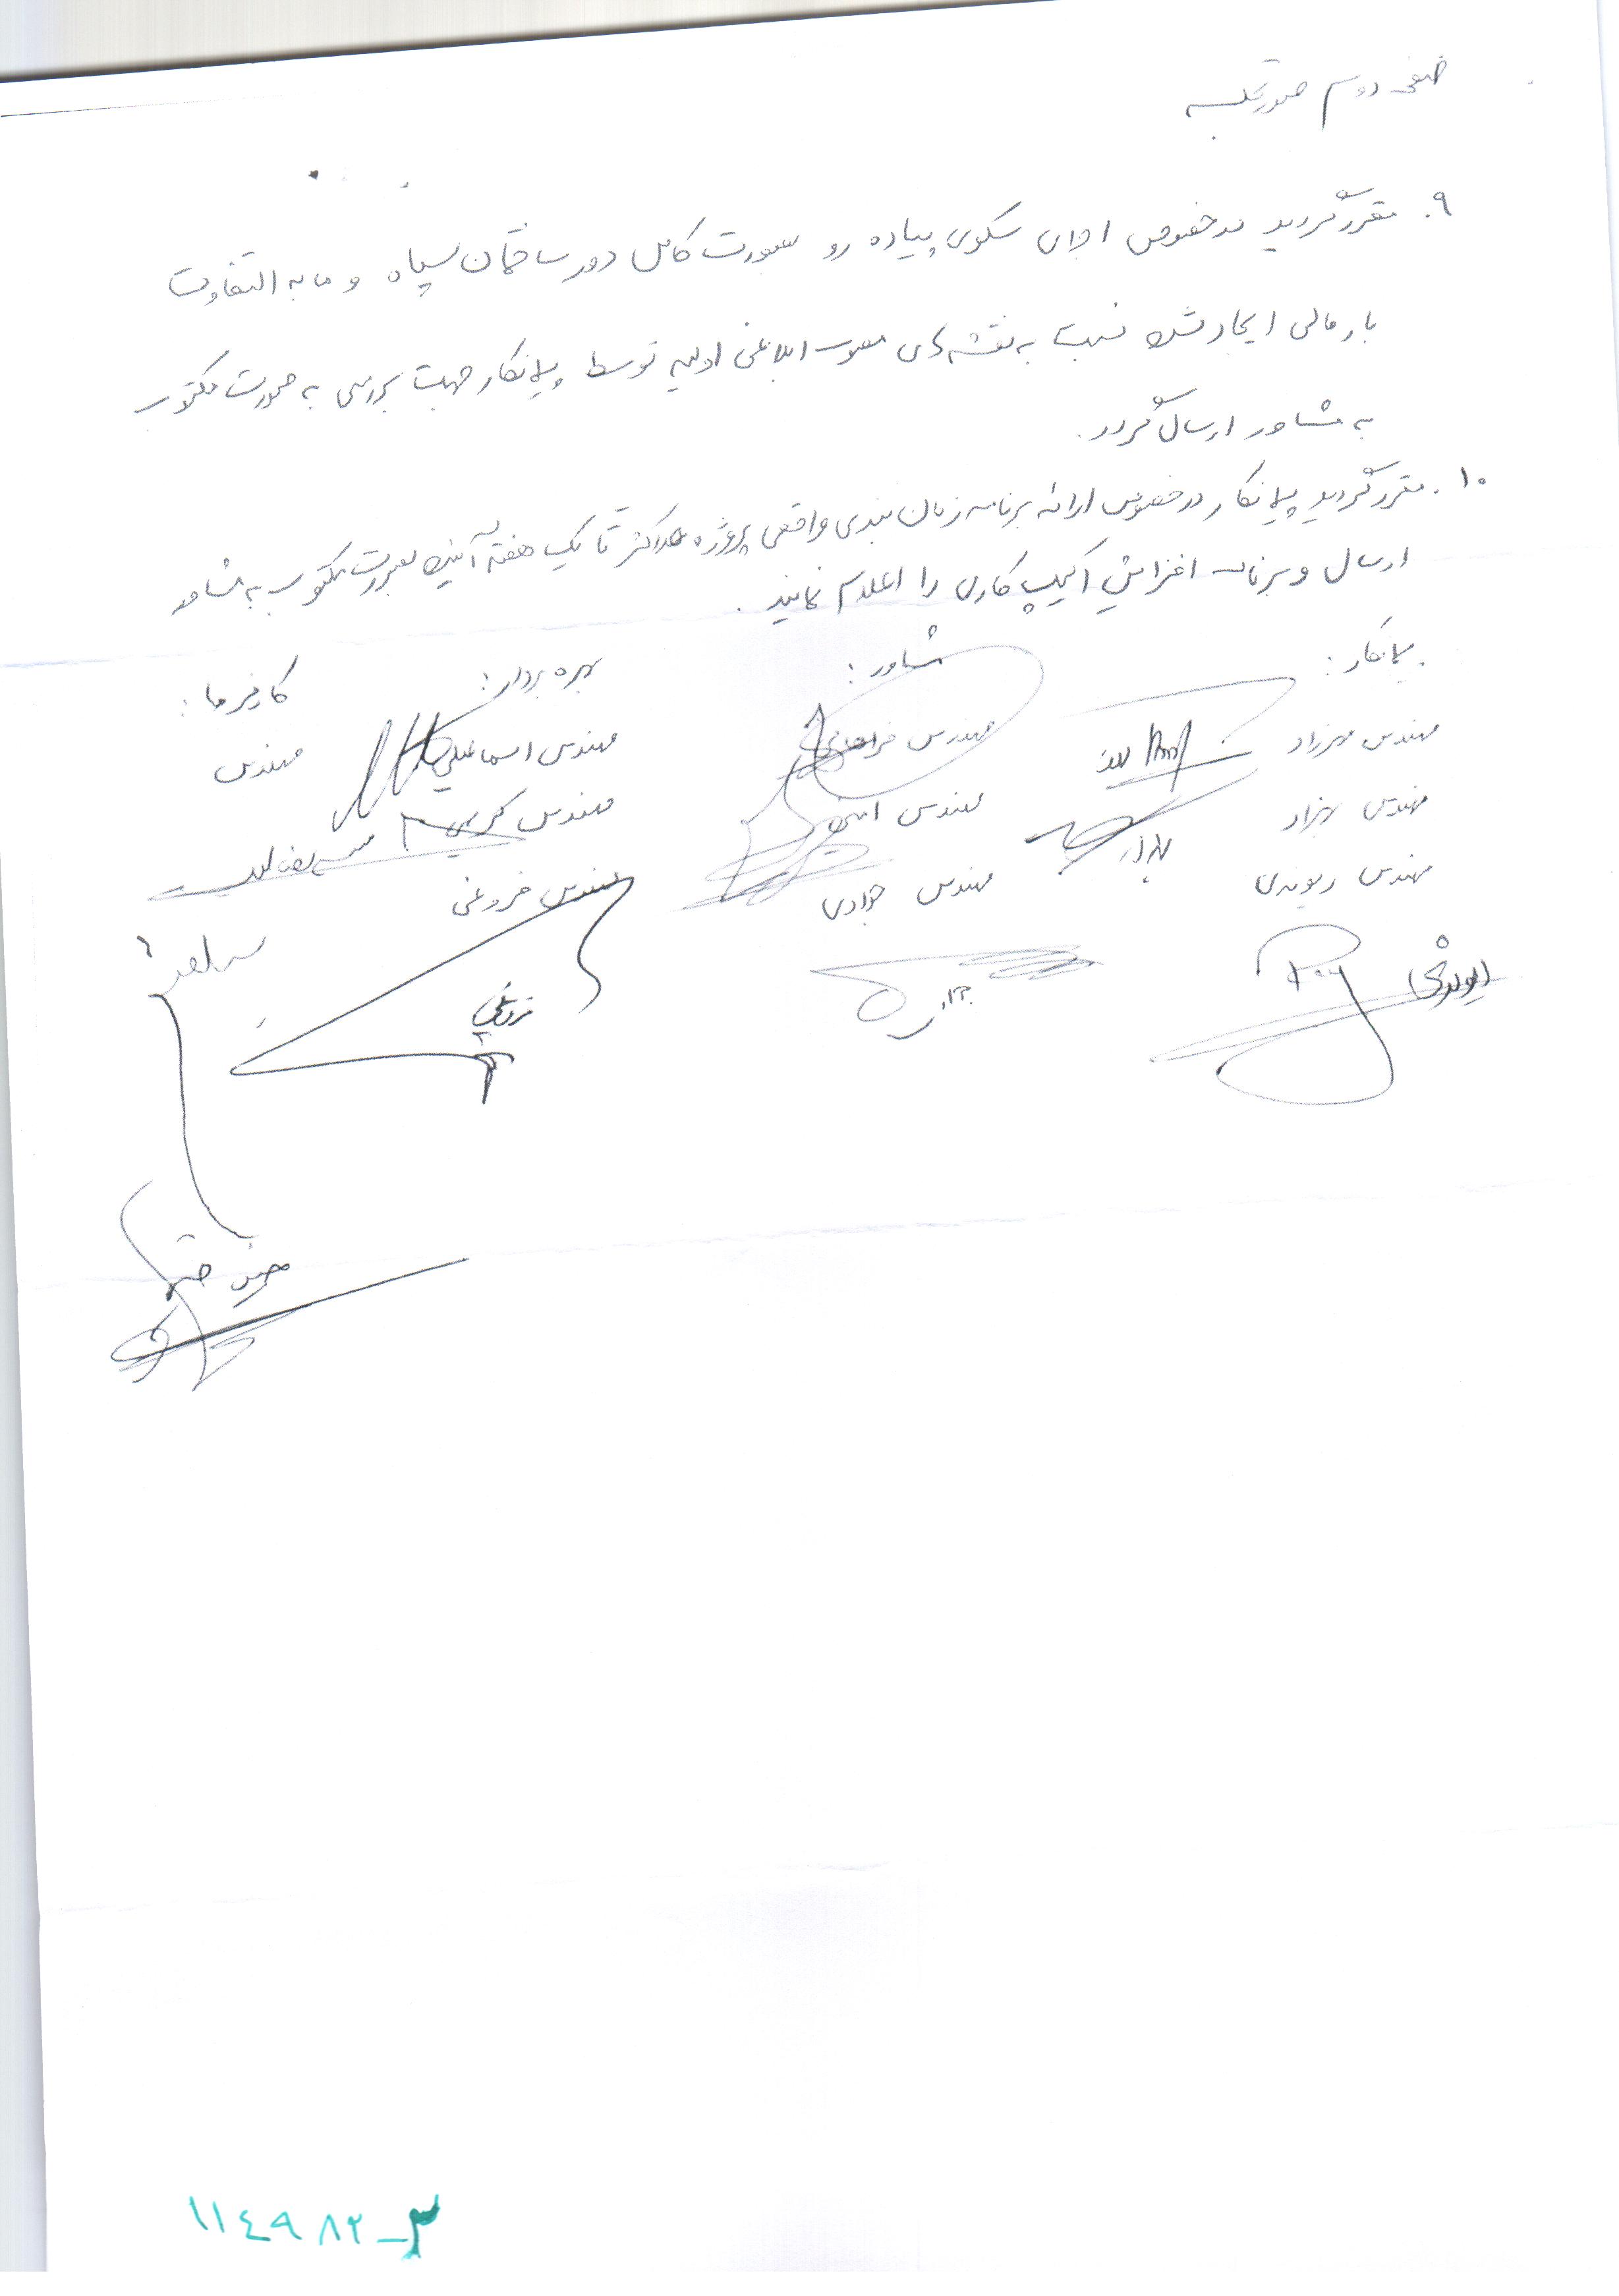 صفحه دوم صورتجلسه
۹. مقرر گردید در خصوص اجرای سکوی پیاده رو بصورت کامل دور ساختمان سپاه و مابه التفاوت
بار مالی ایجاد شده نسبت به نقشه های مصوب ابلاغی اولیه توسط پیمانکار جهت بررسی به صورت مکتوب
به مشاور ارسال گردد.
۱۰. مقرر گردید پیمانکار در خصوص ارائه برنامه زمان بندی واقعی پروژه حداکثر تا یک هفته آینده بصورت مکتوب به مشاور
ارسال و برنامه افزایش اکیپ کاری را اعلام نمایند.
پیمانکار: مشاور: بهره بردار: کارفرما:
مهندس مهرزاد مهندس مهندس اسماعیلی مهندس
مهندس بهزاد مهندس امینی مهندس کریمی
مهندس ریوندی مهندس جوادی مهندس فروغی
ریوندی
فروغی
۱۱٤۹۸۲-۳